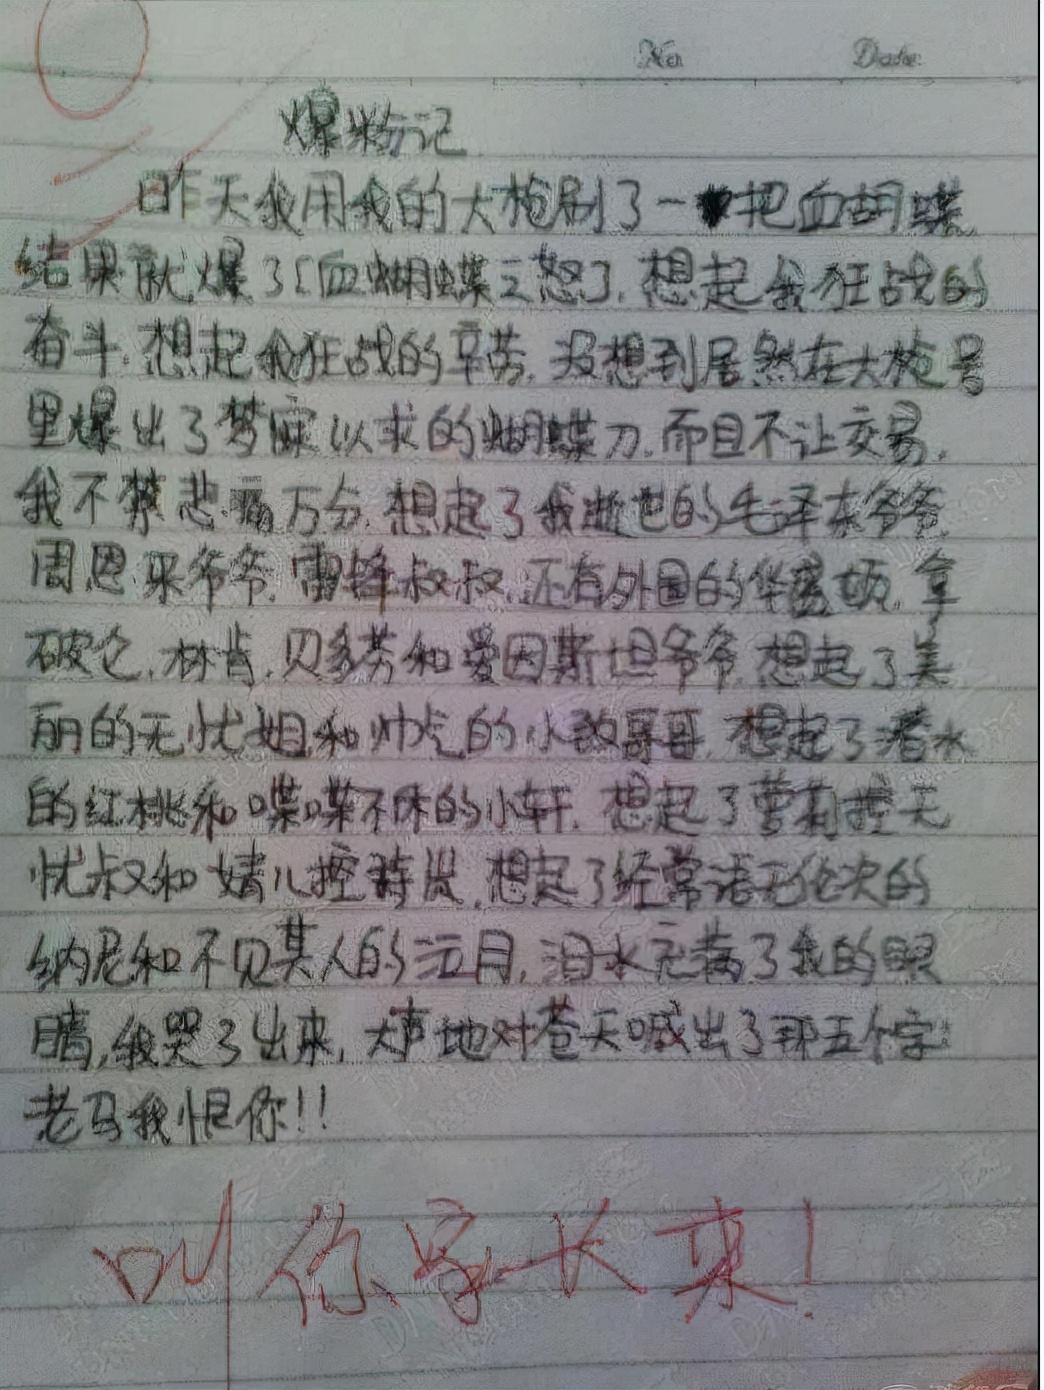 No Date
爆粉记
昨天我用我的大枪刷了一把血蝴蝶
结果就爆了[血蝴蝶之怒了,想起我狂战的
奋斗,想起我狂战的辛苦,没想到居然在大枪号
里爆出了梦寐以求的蝴蝶刀,而且不让交易,
我不禁悲痛万分,想起了我逝世的毛泽东爷爷
周恩来爷爷,雷锋叔叔,还有外国的华盛顿,拿
破仑,林肯,贝多芬和爱因斯坦爷爷,想起了美
丽的无忧姐和帅气的小敌哥哥,想起了潜水
的红桃和喋喋不休的小轩,想起了控无
忧叔和婧儿控,想起了经常语无伦次的
纳尼和不见其人的沅月,泪水充满了我的眼
睛,我哭了出来,大声地对苍天喊出了那五个字:
老马我恨你!!
叫你家长来!